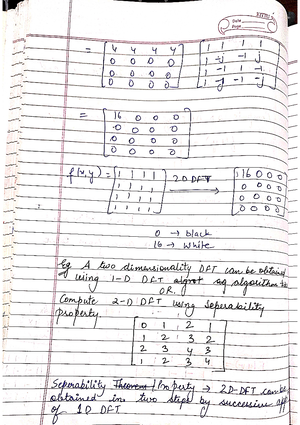 Date
Page
= [4 4 4 4] [1 1 1 1]
[0 0 0 0] [1 -j -1 j]
[0 0 0 0] [1 -1 1 -1]
[0 0 0 0] [1 -j -1 -j]
= [16 0 0 0]
[0 0 0 0]
[0 0 0 0]
[0 0 0 0]
f(x,y) = [1 1 1 1] 2D DFT → [16 0 0 0]
[1 1 1 1] [0 0 0 0]
[1 1 1 1] [0 0 0 0]
[1 1 1 1] [0 0 0 0]
0 → black
16 → White
Eg A two dimensionality DFT can be obtained
using 1-D DFT algorithm
OR
Compute 2-D DFT using Seperability
property.
[0 1 2 1]
[1 2 3 2]
[2 3 4 3]
[1 2 3 4]
Seperability Theorem / Property → 2D-DFT can be
obtained in two steps by successive
of 1D DFT.